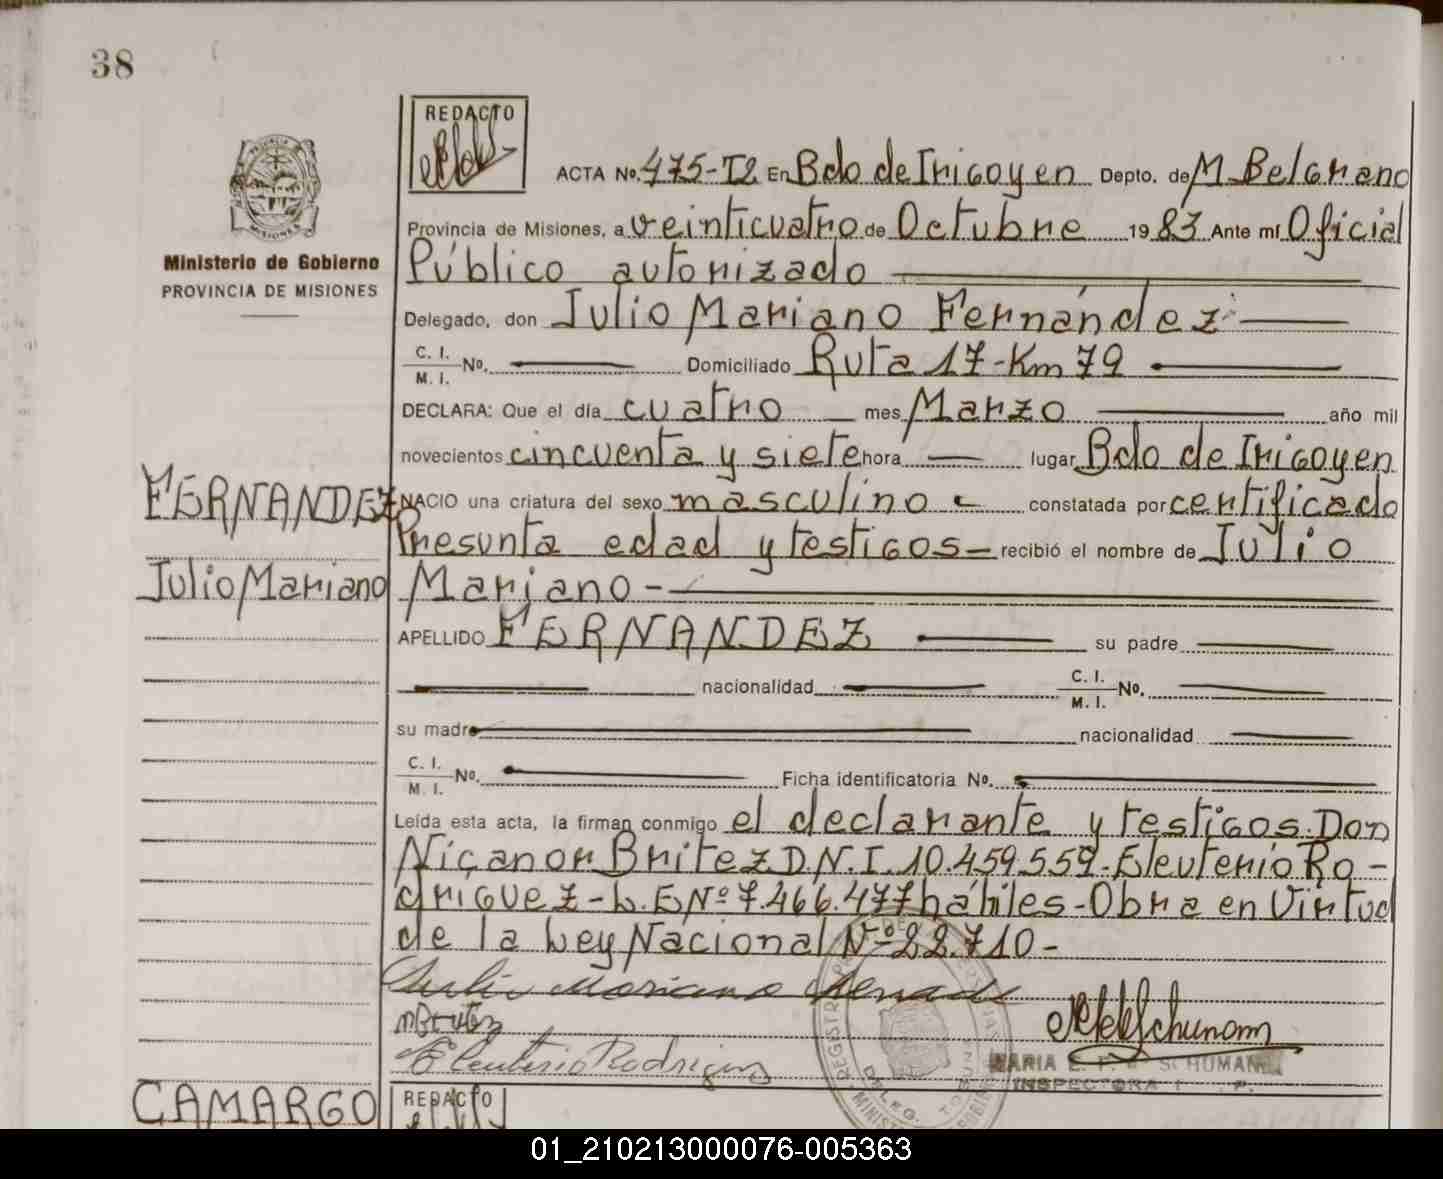 38
REDACTO
ACTA No. 475-T2 En Bdo de Irigoyen Depto. de M. Belgrano
Provincia de Misiones, a veinticuatro de Octubre 1983 Ante mí Oficial
Público autorizado
Ministerio de Gobierno
PROVINCIA DE MISIONES
Delegado, don Julio Mariano Fernández
C. I.
M. I. No. Domiciliado Ruta 17-Km 79
DECLARA: Que el día cuatro mes Marzo año mil
novecientos cincuenta y siete hora lugar Bdo de Irigoyen
FERNANDEZ
NACIO una criatura del sexo masculino constatada por certificado
Presunta edad y testigos recibió el nombre de Julio
Julio Mariano
Mariano
APELLIDO FERNANDEZ su padre
nacionalidad C. I.
M. I. No.
su madre nacionalidad
C. I.
M. I. No. Ficha identificatoria No.
Leída esta acta, la firman conmigo el declarante y testigos. Don
Niçanor Britez D.N.I. 10.459.559-Eleuterio Ro-
driguez-L.E Nº 7.466.477 hábiles-Obra en Virtud
de la Ley Nacional Nº 22.710-
Julio Mariano
Eleuterio Rodriguez
MARIA SCHUMAN
INSPECTORA
CAMARGO
REDACTO
01_210213000076-005363